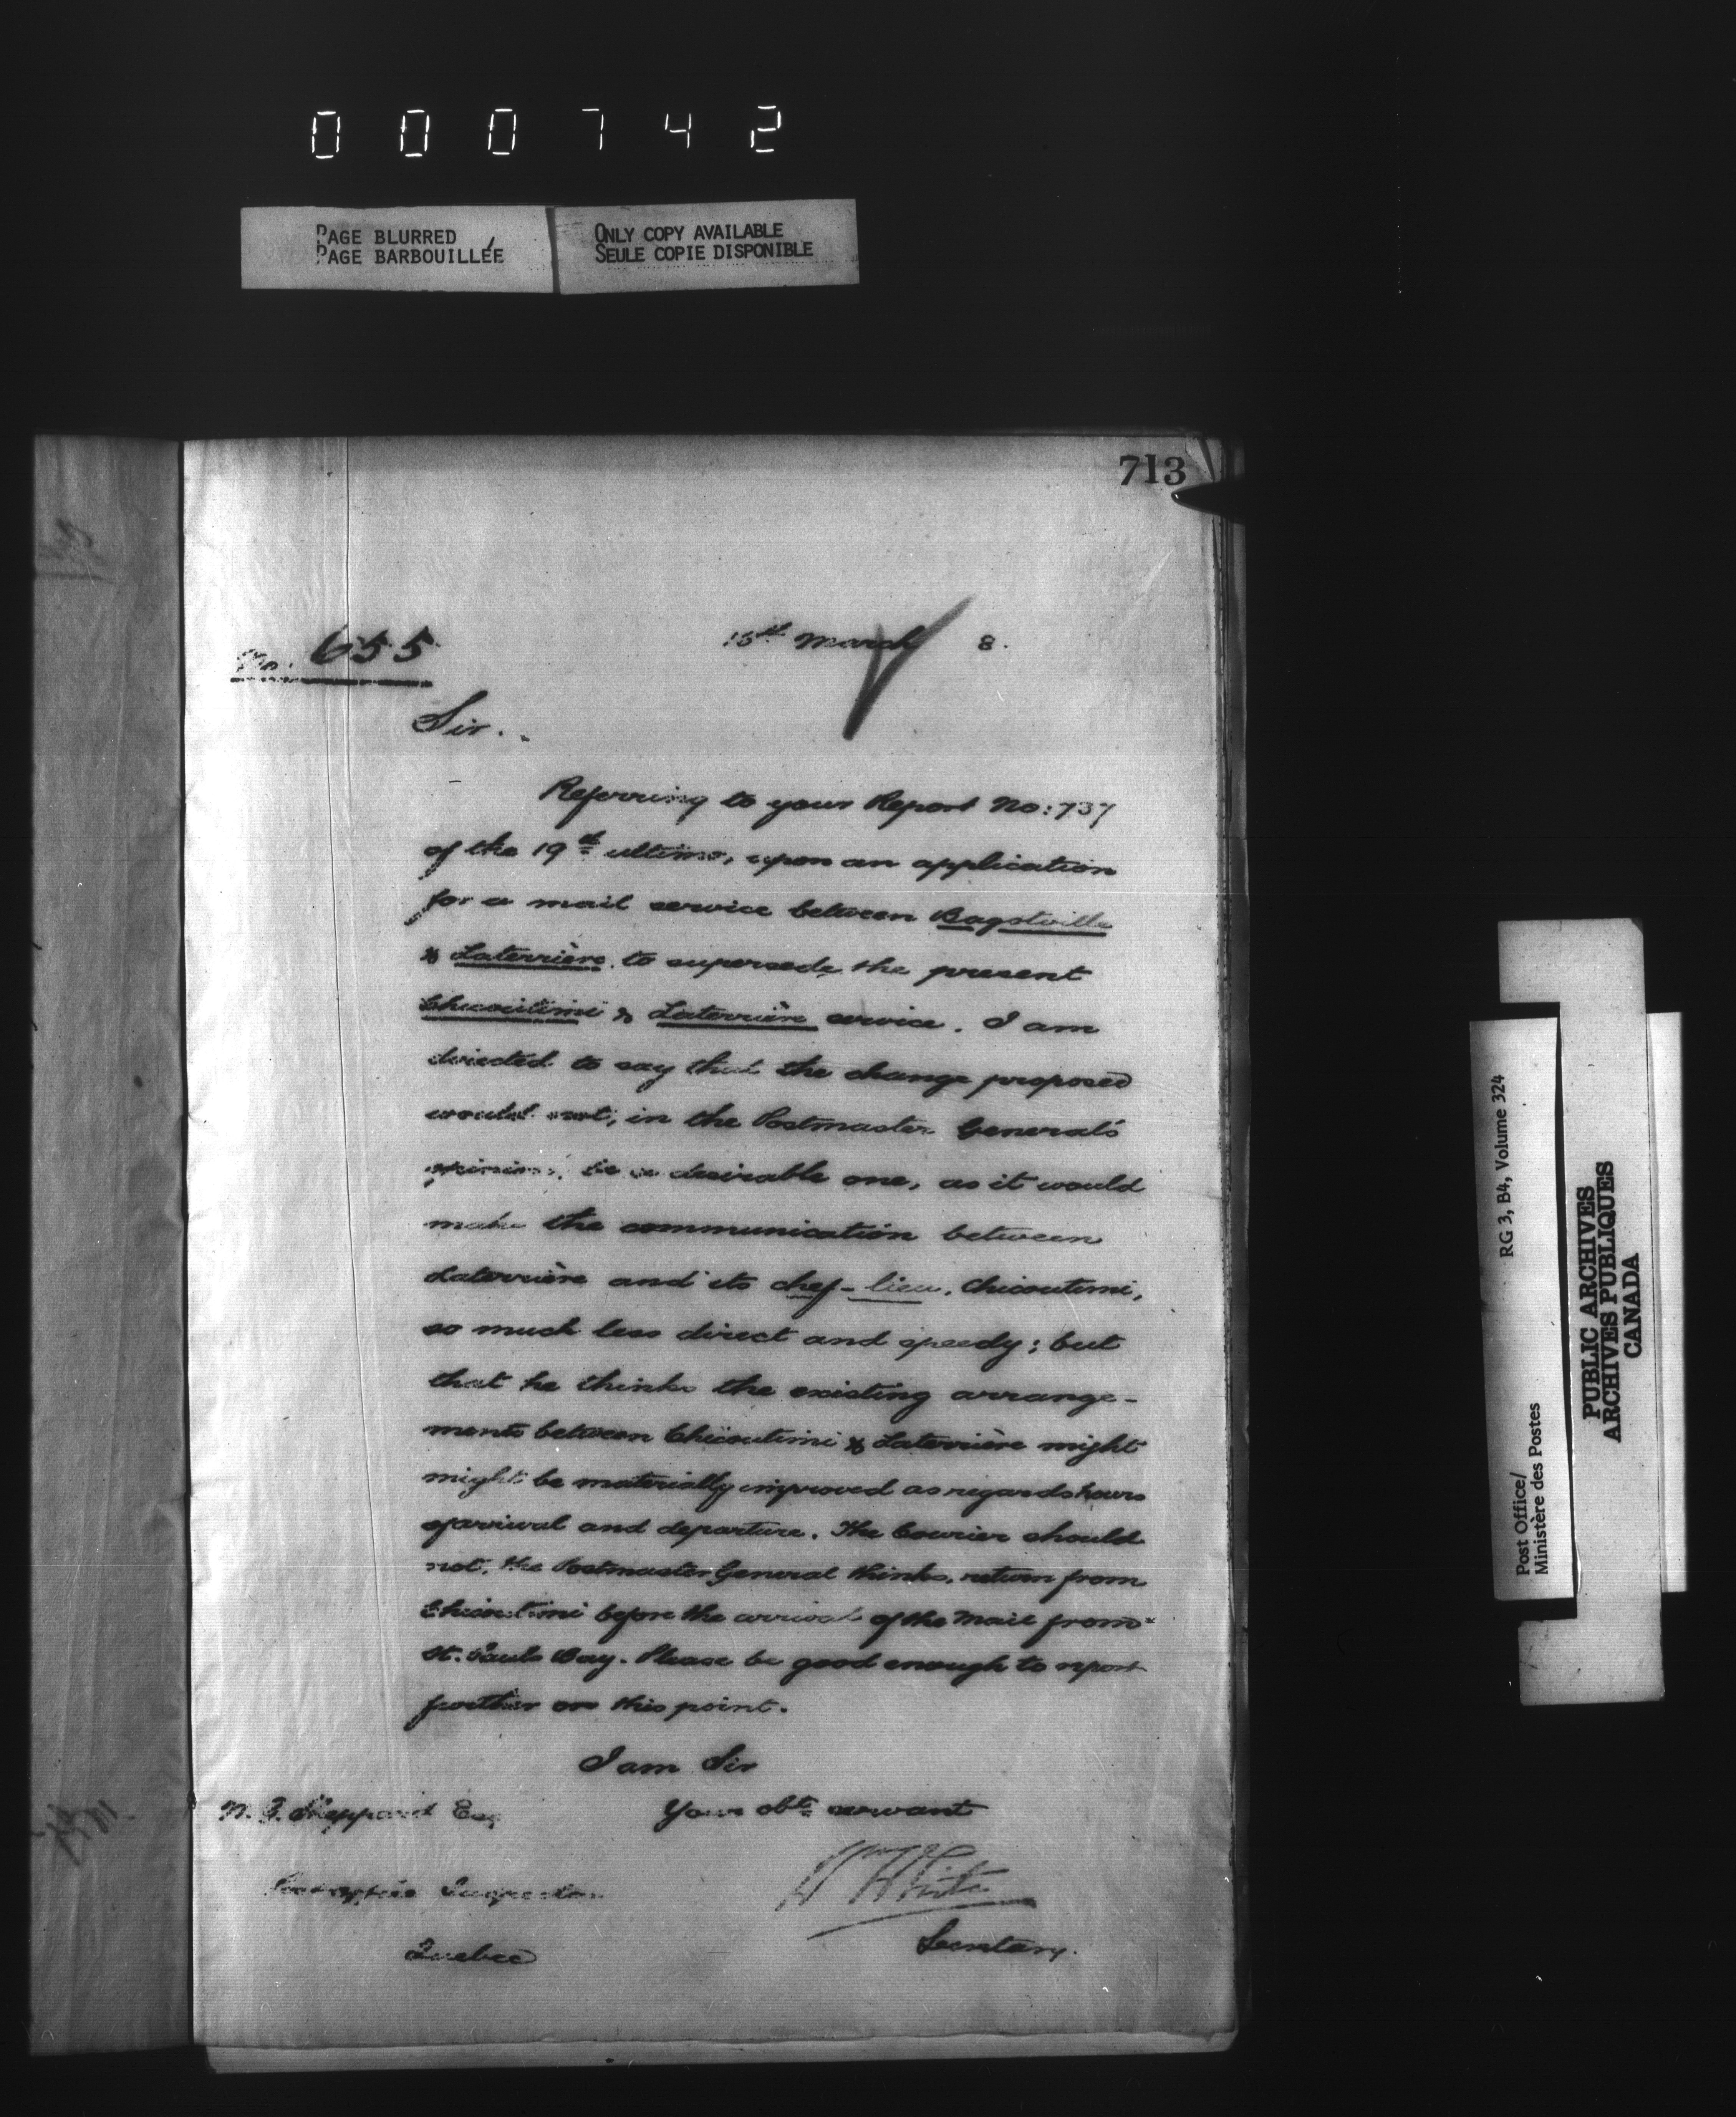 000742
PAGE BLURRED
PAGE BARBOUILLÉE
ONLY COPY AVAILABLE
SEULE COPIE DISPONIBLE
713
No. 655
15th March 8.
Sir.
Referring to your Report No: 737
of the 19th ultimo, upon an application
for a mail service between Bagotville
& Laterrière to supersede the present
Chicoutimi & Laterrière service. I am
directed to say that the change proposed
would not, in the Postmaster General's
opinion, be a desirable one, as it would
make the communication between
Laterrière and its chef-lieu, Chicoutimi,
so much less direct and speedy; but
that he thinks the existing arrange-
ments between Chicoutimi & Laterrière might
might be materially improved as regards hours
of arrival and departure. The Courier should
not, the Postmaster General thinks, return from
Chicoutimi before the arrival of the Mail from
St. Pauls Bay. Please be good enough to report
further on this point.
I am Sir
Your obt. servant
W. G. Sheppard Esq
Post Office Inspector
Quebec
W White
Secretary.
RG 3, B4, Volume 324
Post Office/
Ministère des Postes
PUBLIC ARCHIVES
ARCHIVES PUBLIQUES
CANADA